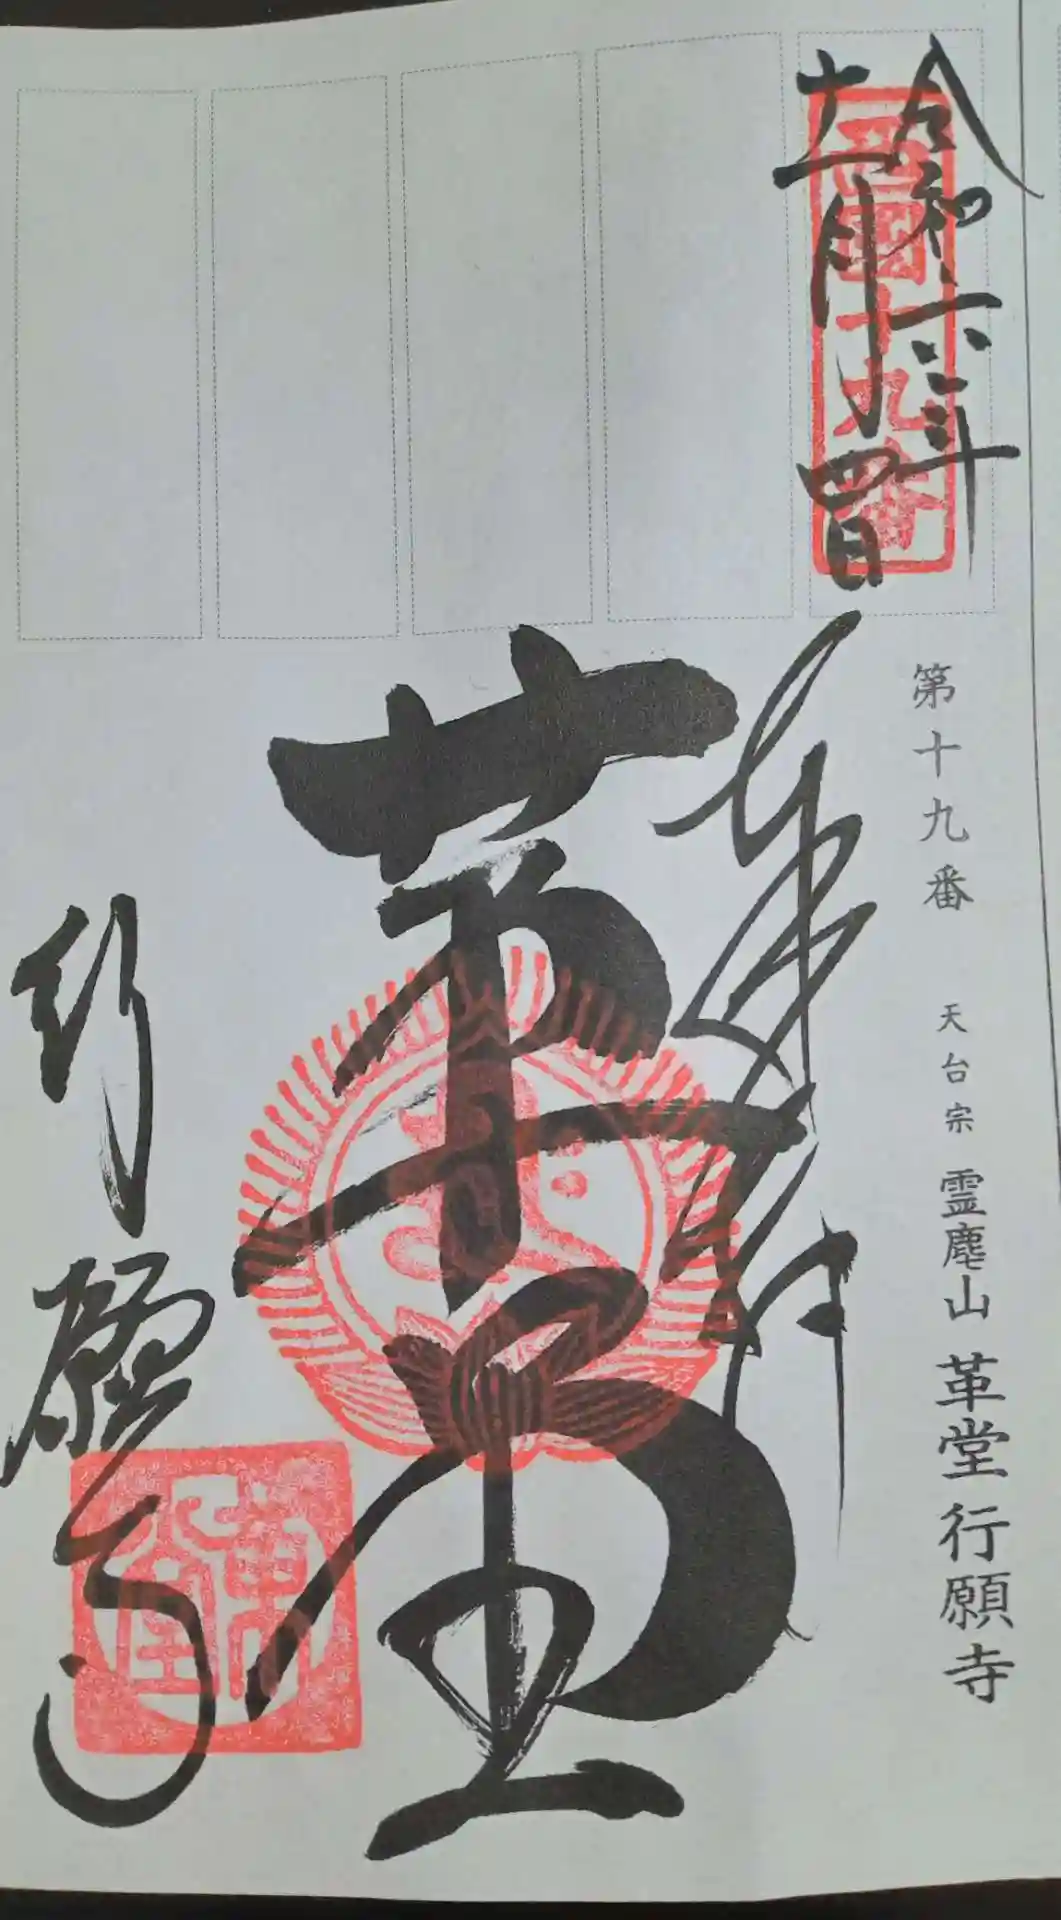 令和六年
十一月四日
西国十九番
第十九番 天台宗 霊麀山 革堂 行願寺
奉拝
革堂
行願寺
革堂